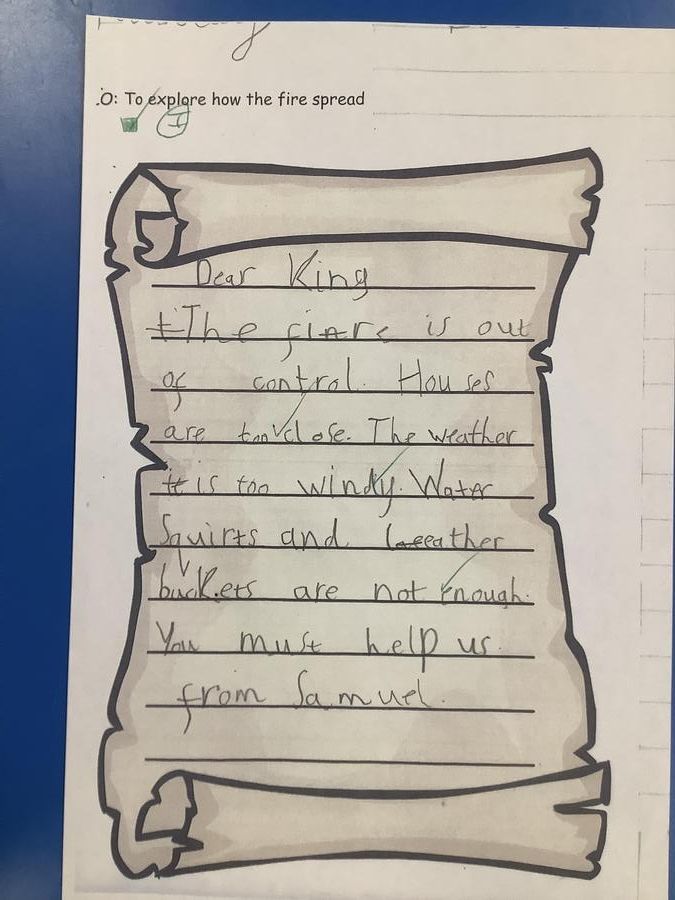 .O: To explore how the fire spread
I
Dear King
The fire is out
of control. Houses
are too close. The weather
is too windy. Water
Squirts and leather
buckets are not enough.
You must help us.
from Samuel.